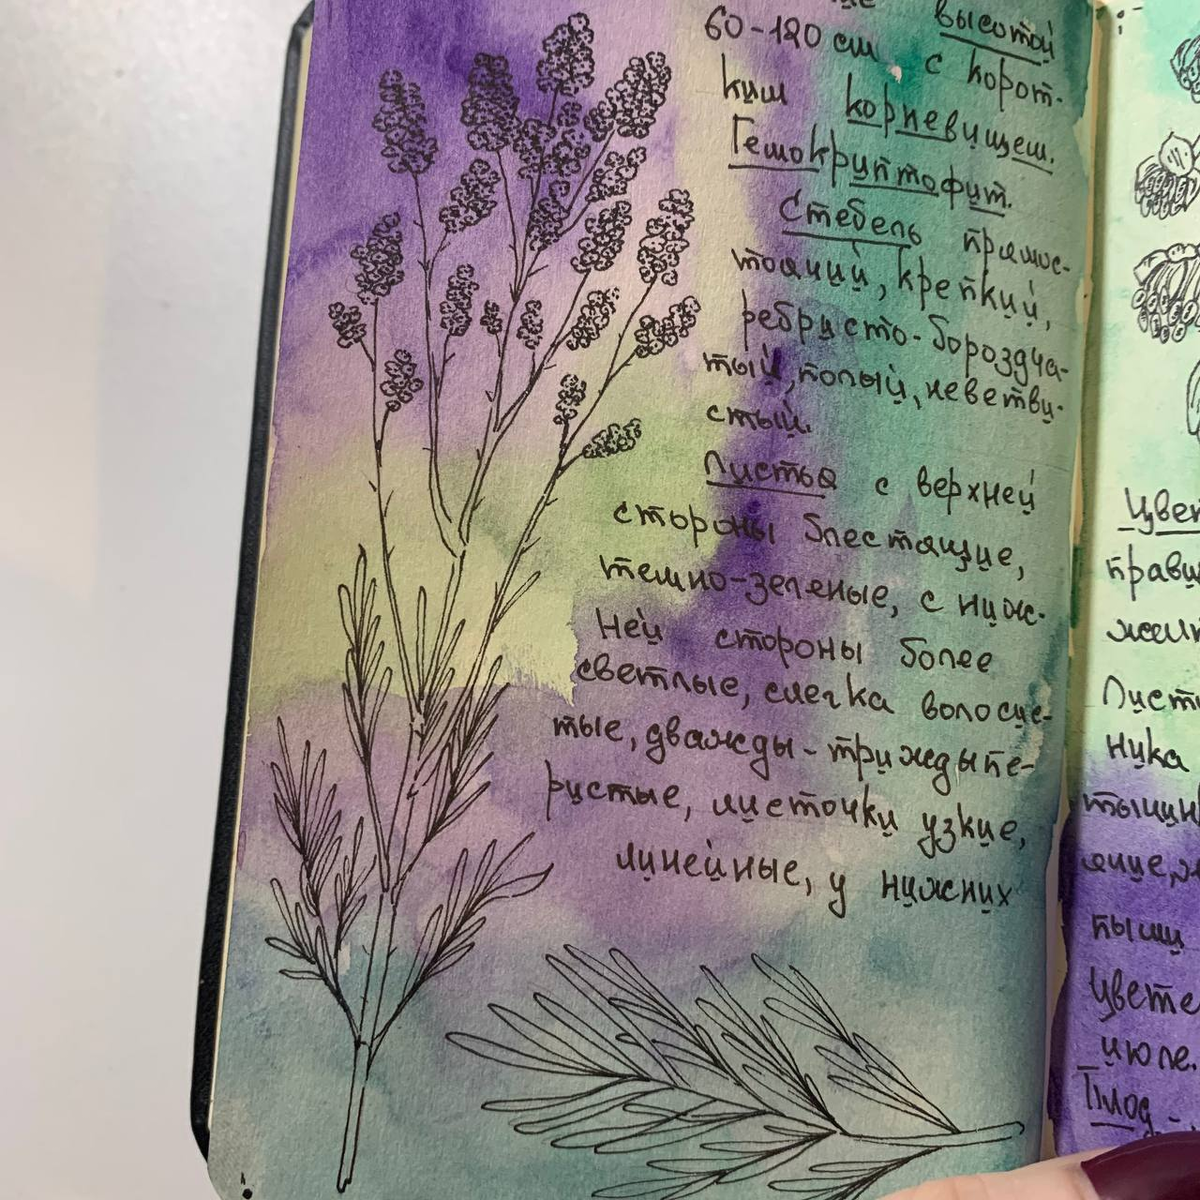 высотой
60-120 см с корот-
ким корневищем.
Гемокриптофит.
Стебель прямос-
тоячий, крепкий,
ребристо-бороздча-
тый, полый, неветви-
стый.
Листья с верхней
стороны блестящие,
темно-зеленые, с ниж-
ней стороны более
светлые, слегка волосис-
тые, дважды-триждыпе-
ристые, листочки узкие,
линейные, у нижних
Цвет
прави
жели
Листо
ника
тычин
яице,
тыми
Цвете
июле.
Плод -